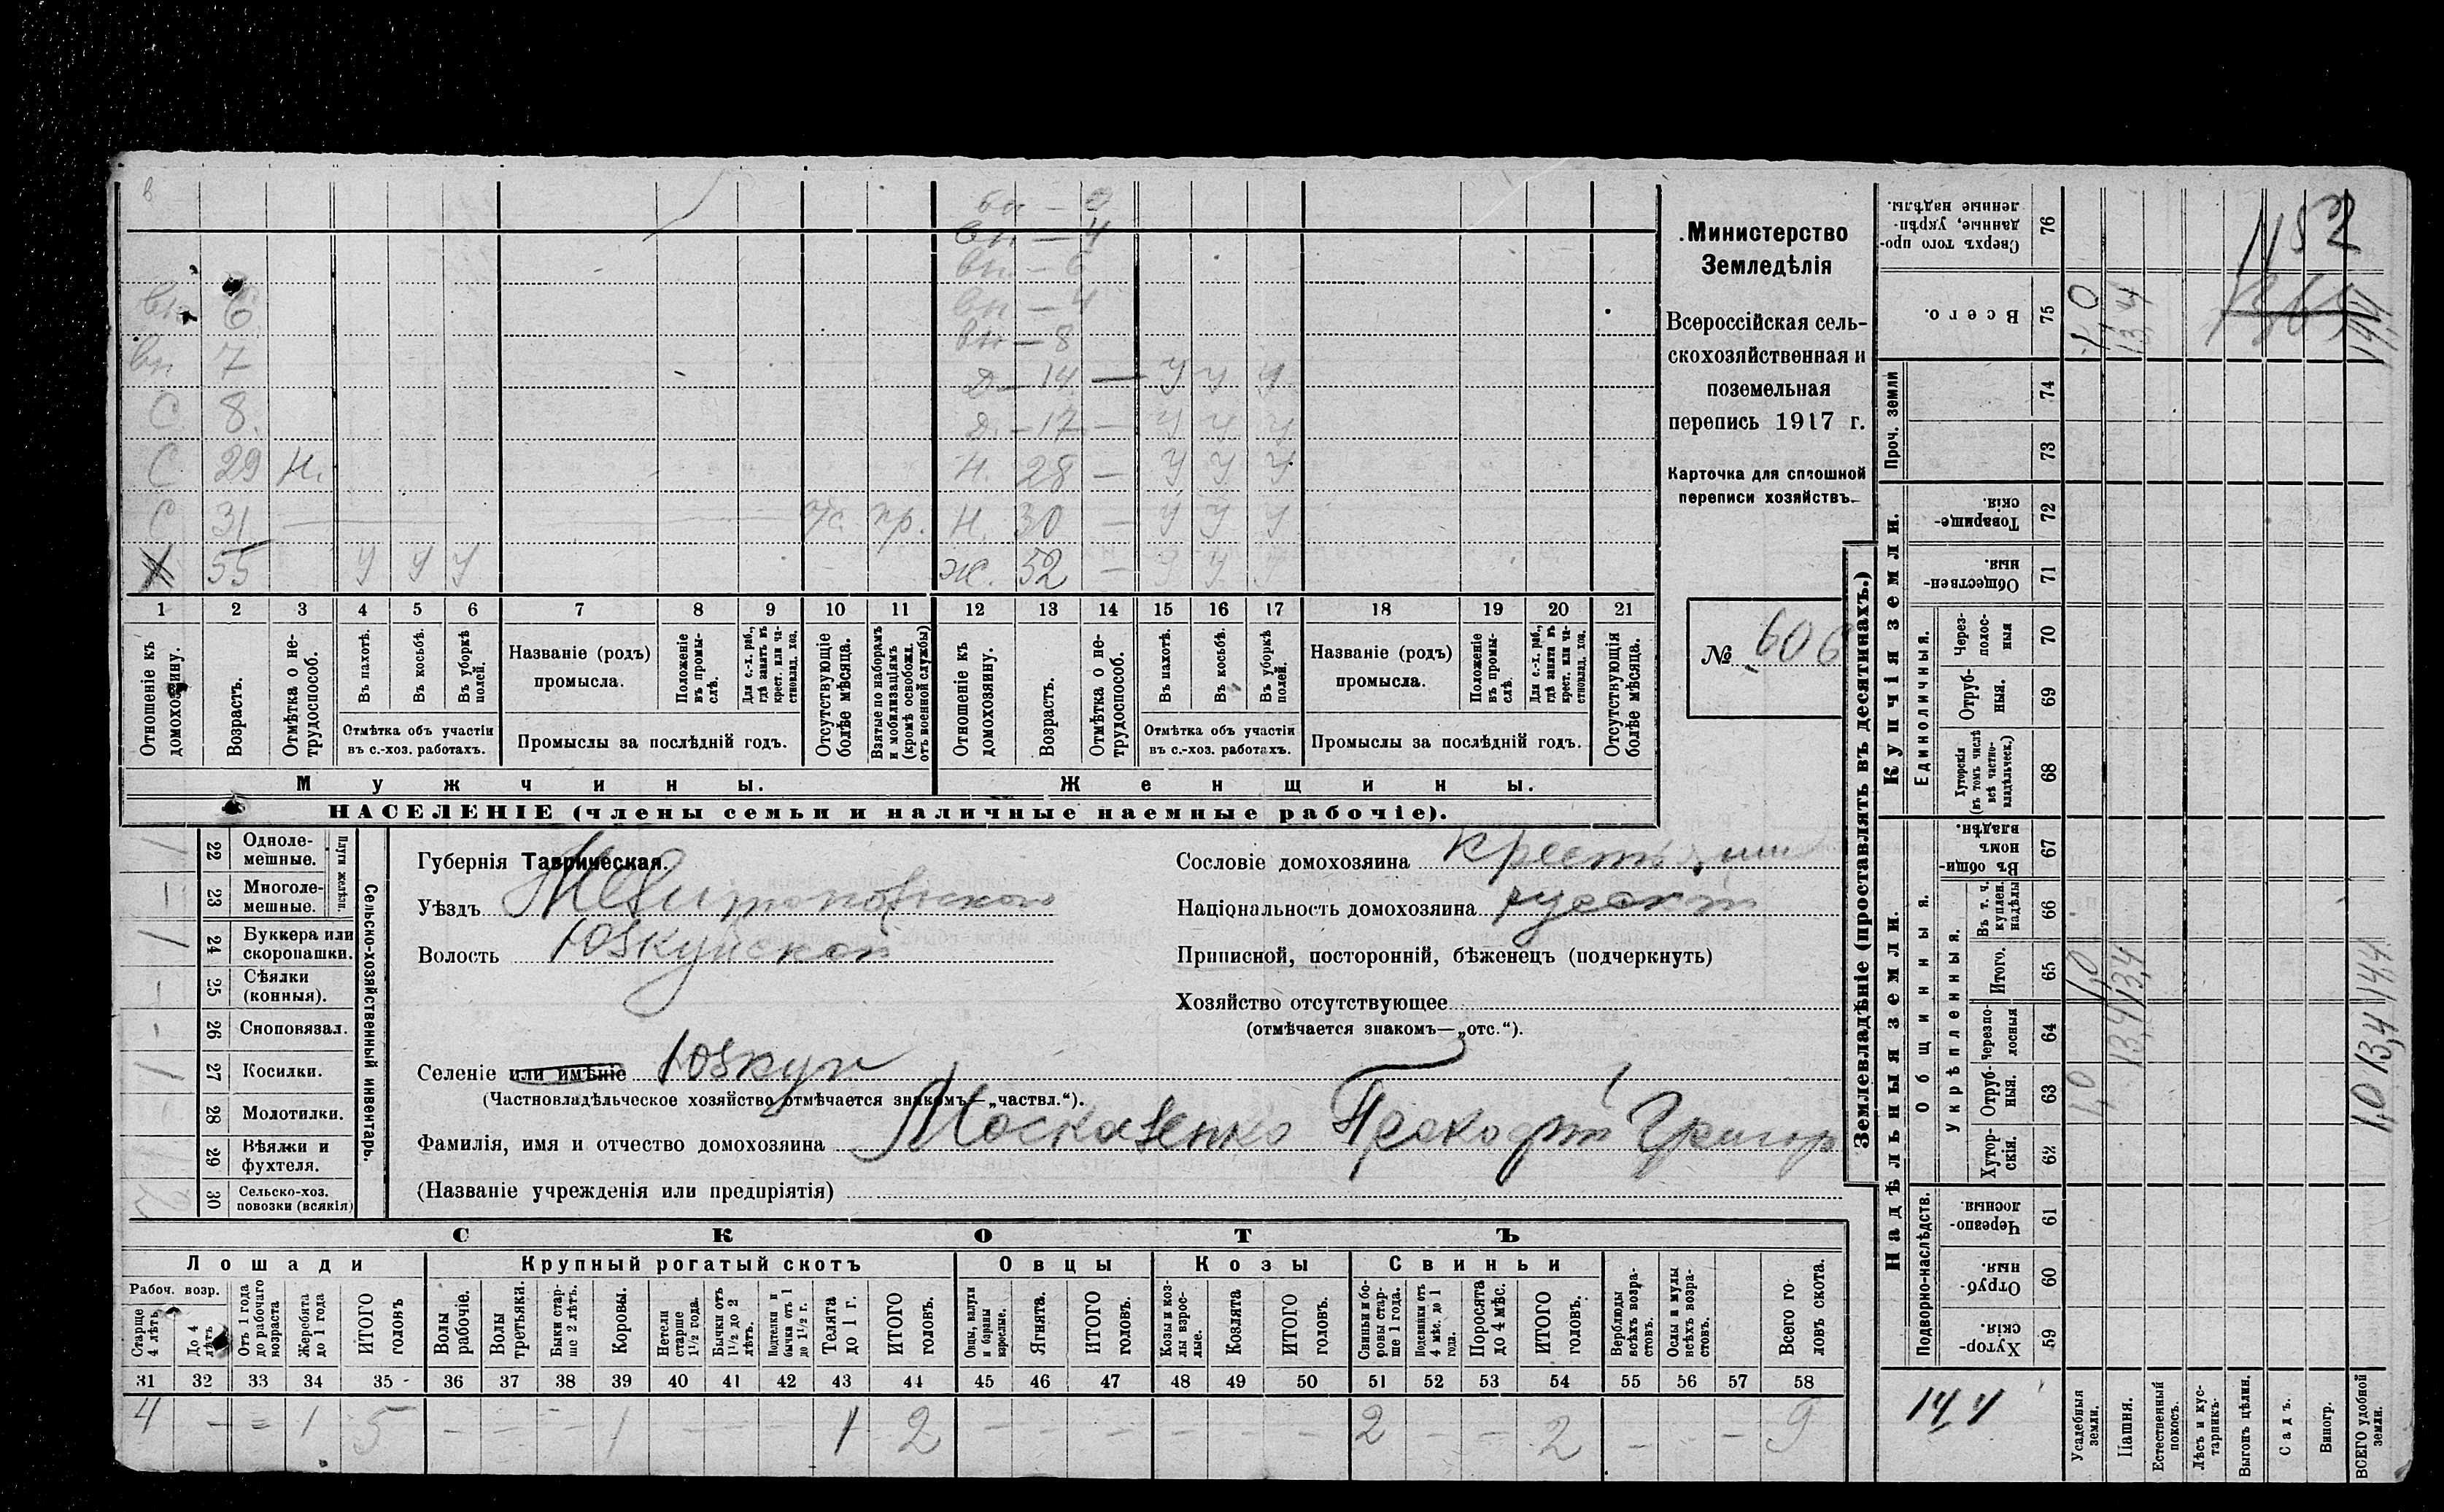 в
вн — 4
вн. — 6
вн 6 вн — 4
вн 7 вн — 8
Д — 14 — У У У
С 8. Д. — 17 — У У У
С 29 Н. Н. 28 — У У У
С 31 пр. Н. 30 — У У У
Х 55 У У У Ж. 52 — У У У
1 2 3 4 5 6 7 8 9 10 11 12 13 14 15 16 17 18 19 20 21
Отношеніе къ домохозяину.
Возрастъ.
Отмѣтка о нетрудоспособ.
Въ пахотѣ.
Въ косьбѣ.
Въ уборкѣ полей.
Отмѣтка объ участіи
въ с.-хоз. работахъ.
Названіе (родъ)
промысла.
Положеніе въ промыслѣ.
Для с.-х. раб., гдѣ занятъ въ крест. или частновлад. хоз.
Промыслы за послѣдній годъ.
Отсутствующіе болѣе мѣсяца.
Взятые по наборамъ и мобилизаціямъ (кромѣ освобожд. отъ военной службы)
Отношеніе къ домохозяину.
Возрастъ.
Отмѣтка о нетрудоспособ.
Въ пахотѣ.
Въ косьбѣ.
Въ уборкѣ полей.
Отмѣтка объ участіи
въ с.-хоз. работахъ.
Названіе (родъ)
промысла.
Положеніе въ промыслѣ.
Для с.-х. раб., гдѣ занята въ крест. или частновлад. хоз.
Промыслы за послѣдній годъ.
Отсутствующія болѣе мѣсяца.
Мужчины. Женщины.
НАСЕЛЕНІЕ (члены семьи и наличные наемные рабочіе).
Министерство
Земледѣлія
Всероссійская сель-
скохозяйственная и
поземельная
перепись 1917 г.
Карточка для сплошной
переписи хозяйствъ.
№ 606
22 Одноле-
мешные.
23 Многоле-
мешные.
Плуги желѣзн.
24 Буккера или
скоропашки.
25 Сѣялки
(конныя).
26 Сноповязал.
27 Косилки.
28 Молотилки.
29 Вѣялки и
фухтеля.
30 Сельско-хоз.
повозки (всякія)
Сельско-хозяйственный инвентарь.
Губернія Таврическая.
Уѣздъ Мелитопольского
Волость Юзкуйской
Селеніе или имѣніе Юзкуи
(Частновладѣльческое хозяйство отмѣчается знакомъ—„частвл.“).
Фамилія, имя и отчество домохозяина Москаленко Прокофій Григор
(Названіе учрежденія или предпріятія)
Сословіе домохозяина
Національность домохозяина русскій
Приписной, посторонній, бѣженецъ (подчеркнуть)
Хозяйство отсутствующее
(отмѣчается знакомъ—„отс.“).
СКОТЪ
Лошади Крупный рогатый скотъ Овцы Козы Свиньи
Рабоч. возр.
Старше 4 лѣтъ
До 4 лѣтъ
Отъ 1 года до рабочаго возраста
Жеребята до 1 года
ИТОГО головъ
Волы рабочіе.
Волы третьяки.
Быки старше 2 лѣтъ.
Коровы.
Нетели старше 1½ года.
Бычки отъ 1½ до 2 лѣтъ.
Подтелки и бычки отъ 1 до 1½ г.
Телята до 1 г.
ИТОГО головъ.
Овцы, валухи и бараны взрослые.
Ягнята.
ИТОГО головъ.
Козы и козлы взрослые.
Козлята
ИТОГО головъ.
Свиньи и боровы старше 1 года.
Подсвинки отъ 4 мѣс. до 1 года.
Поросята до 4 мѣс.
ИТОГО головъ.
Верблюды всѣхъ возрастовъ.
Ослы и мулы всѣхъ возрастовъ.
Всего головъ скота.
31 32 33 34 35 36 37 38 39 40 41 42 43 44 45 46 47 48 49 50 51 52 53 54 55 56 57 58
4 — = 1 5 — — — 1 — — — 1 2 — — — — — — 2 — — 2 — — — 9
Землевладѣніе (проставлять въ десятинахъ.)
Сверхъ того проданные, укрѣпленные надѣлы. 76
Всего. 75 1,0 13,4 14,4
1182
Проч. земли 74 73
Купчія земли.
Товарищескія. 72
Общественныя. 71
Единоличныя.
Черезполосныя 70
Отрубныя. 69
Хуторскія (въ томъ числѣ всѣ частновладѣльческ.) 68
Надѣльныя земли.
Общинныя.
Въ общинномъ владѣн. 67
Укрѣпленныя.
Въ т. ч. куплен. надѣлы 66
Итого. 65 1,0 13,4 14,4
Черезполосныя 64 13,4 13,4
Отрубныя. 63 1,0 1,0
Хуторскія. 62
Подворно-наслѣдств.
Черезполосныя 61
Отрубныя. 60
Хуторскія. 59
14,4
Усадебныя земли.
Пашня.
Естественный покосъ.
Лѣсъ и кустарникъ.
Выгонъ цѣлин.
Садъ.
Виногр.
ВСЕГО удобной земли.